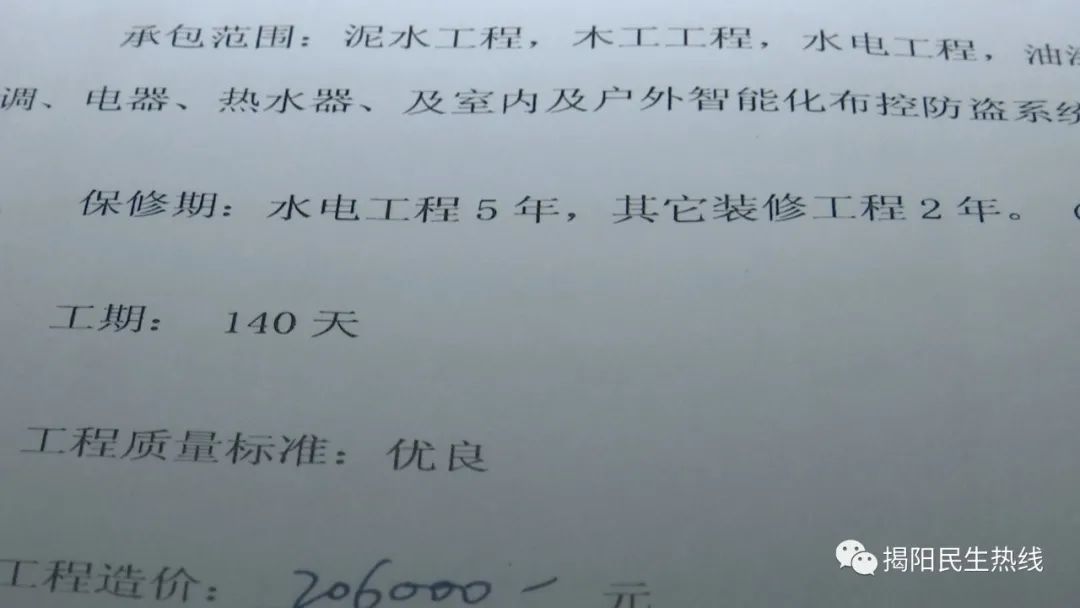 承包范围：泥水工程，木工工程，水电工程，油
调、电器、热水器、及室内及户外智能化布控防盗系统
保修期：水电工程5年，其它装修工程2年。
工期： 140天
工程质量标准：优良
工程造价： 206000- 元
揭阳民生热线